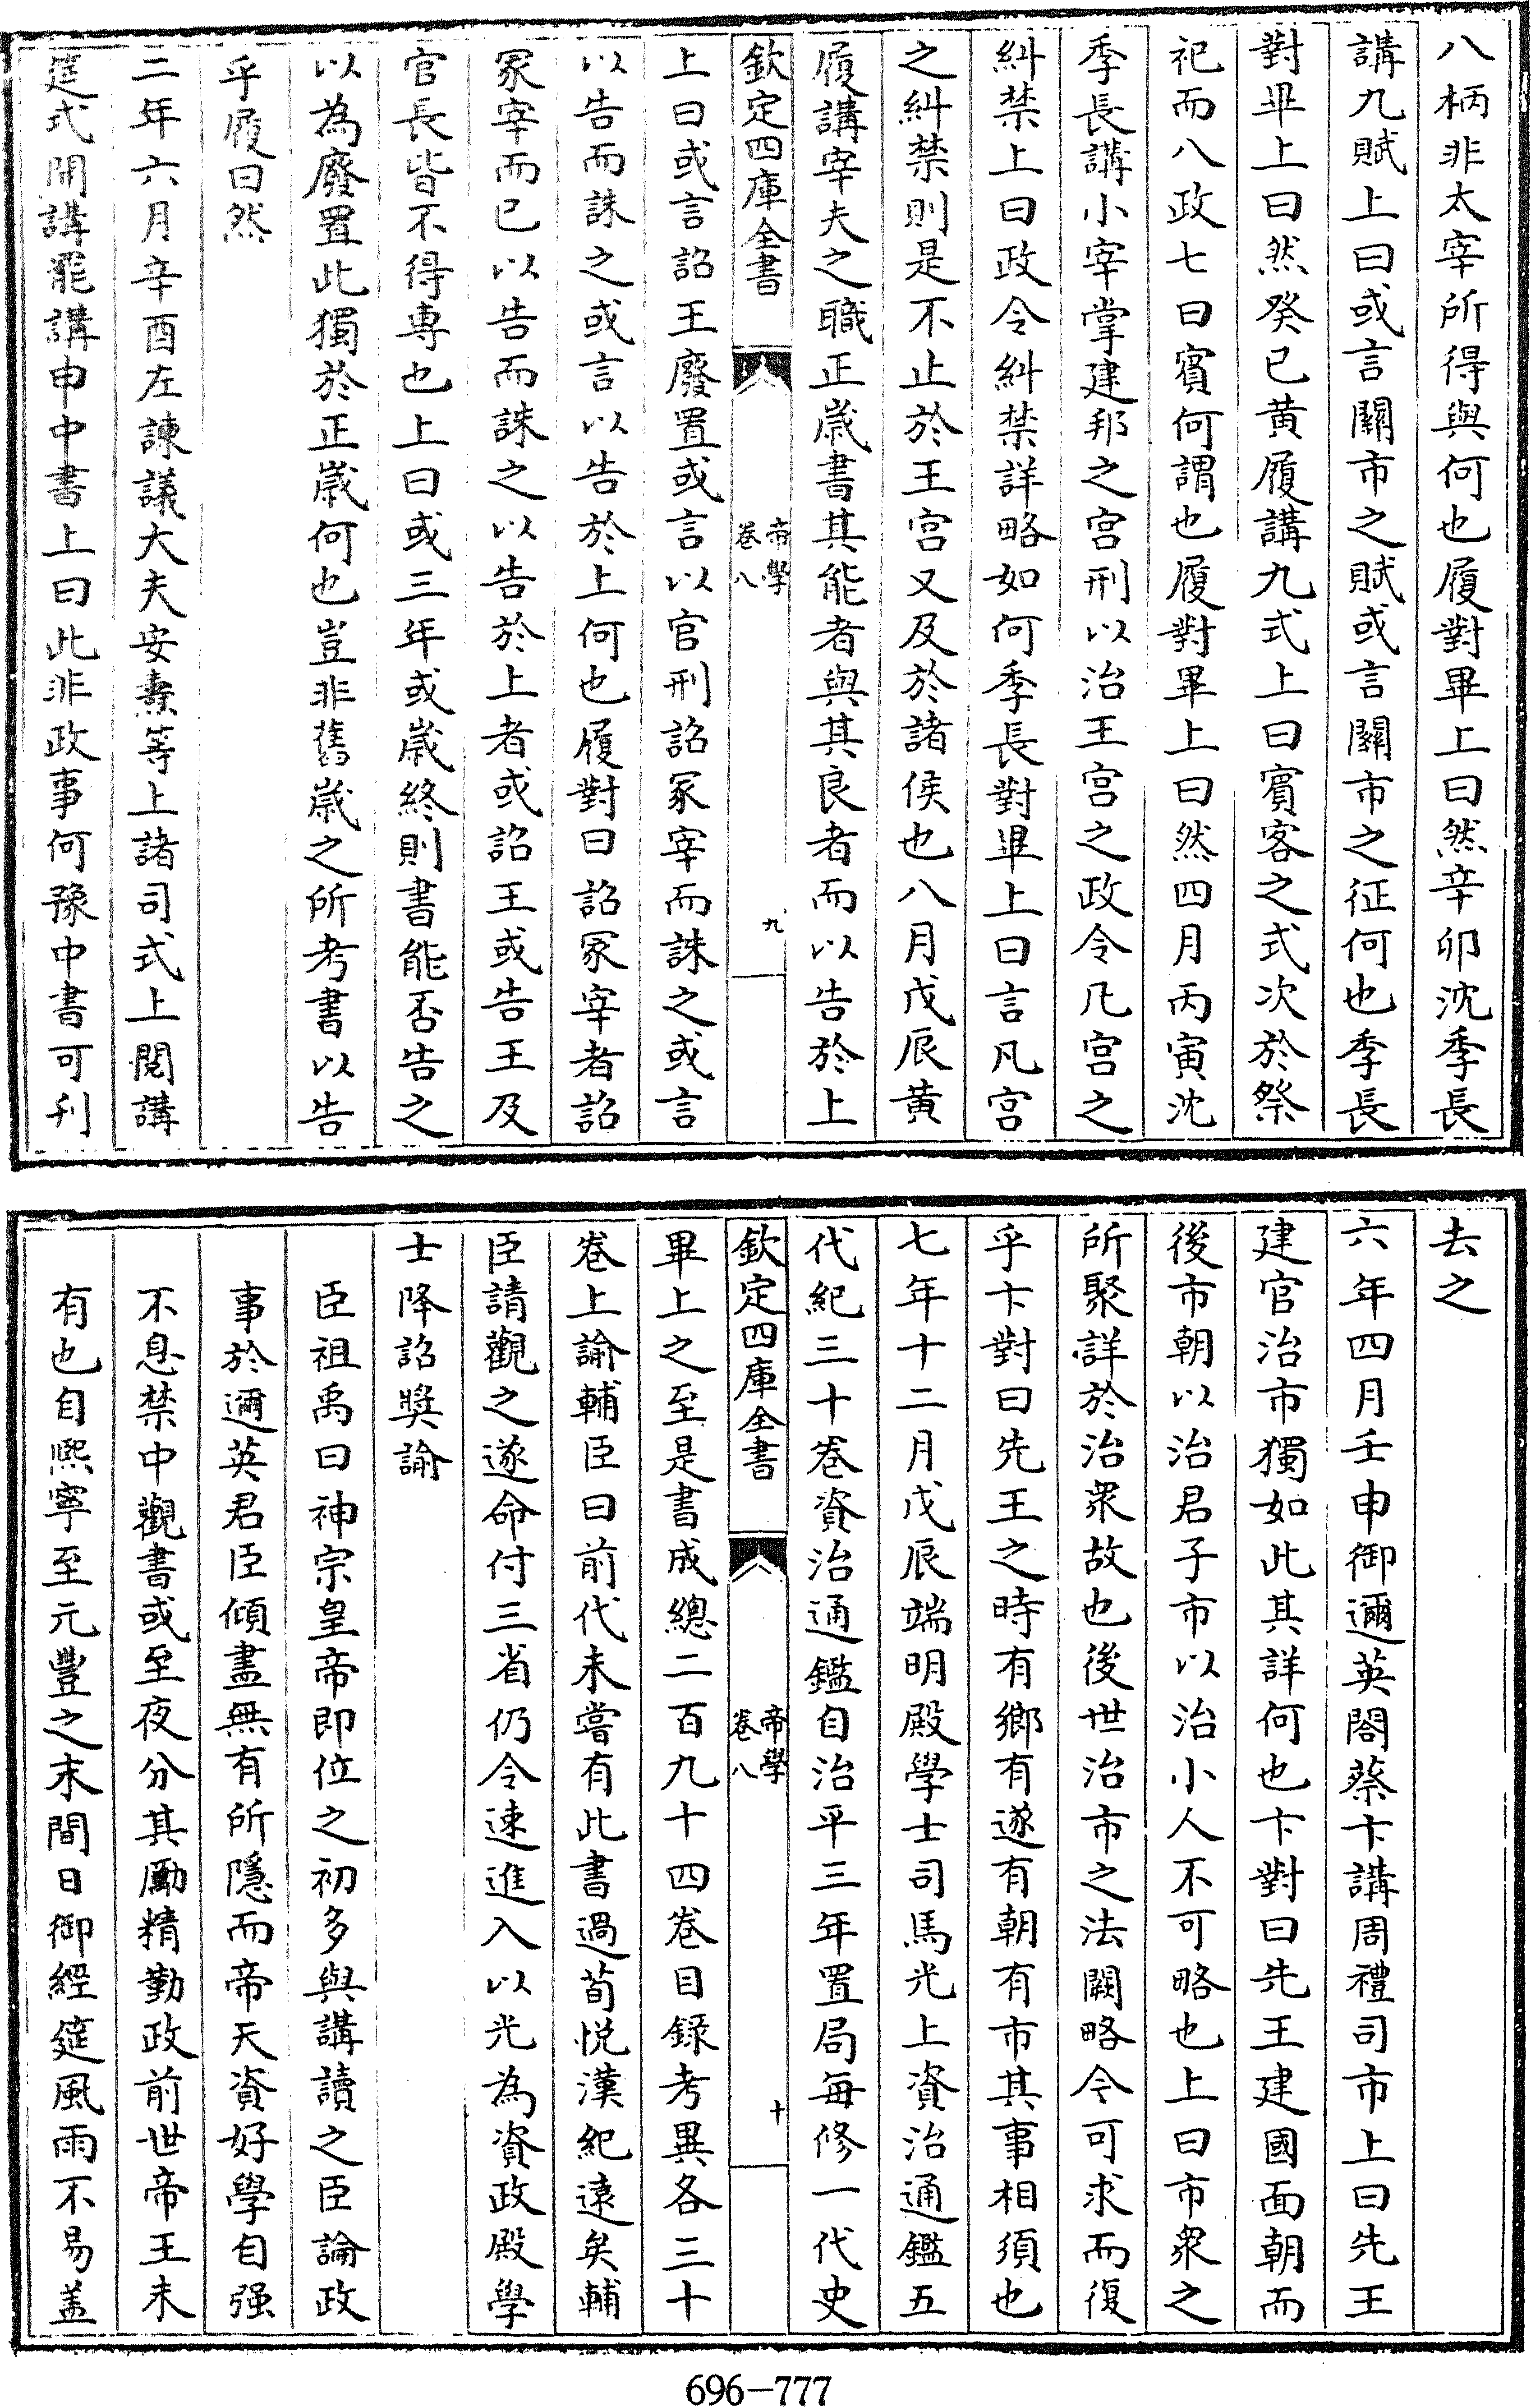 八柄非太宰所得與何也履對畢上曰然辛卯沈季長
講九賦上曰或言關市之賦或言關市之征何也季長
對畢上曰然癸巳黄履講九式上曰賓客之式次於祭
祀而八政七曰賓何謂也履對畢上曰然四月丙寅沈
季長講小宰掌建邦之宫刑以治王宫之政令凡宫之
糾禁上曰政令糾禁詳略如何季長對畢上曰言凡宫
之糾禁則是不止於王宫又及於諸侯也八月戊辰黄
履講宰夫之職正嵗書其能者與其良者而以告於上
欽定四庫全書
帝學
卷八
九
上曰或言詔王廢置或言以官刑詔冢宰而誅之或言
以告而誅之或言以告於上何也履對曰詔冢宰者詔
冢宰而已以告而誅之以告於上者或詔王或告王及
官長皆不得專也上曰或三年或嵗終則書能否告之
以為廢置此獨於正嵗何也豈非舊嵗之所考書以告
乎履曰然
二年六月辛酉左諫議大夫安燾等上諸司式上閲講
筵式開講罷講申中書上曰此非政事何豫中書可刋
去之
六年四月壬申御邇英閣蔡卞講周禮司市上曰先王
建官治市獨如此其詳何也卞對曰先王建國面朝而
後市朝以治君子市以治小人不可略也上曰市衆之
所聚詳於治衆故也後世治市之法闕略今可求而復
乎卞對曰先王之時有鄉有遂有朝有市其事相須也
七年十二月戊辰端明殿學士司馬光上資治通鑑五
代紀三十卷資治通鑑自治平三年置局每修一代史
欽定四庫全書
帝學
卷八
十
畢上之至是書成總二百九十四卷目録考異各三十
卷上諭輔臣曰前代未嘗有此書過荀悦漢紀遠矣輔
臣請觀之遂命付三省仍令速進入以光為資政殿學
士降詔奬諭
臣祖禹曰神宗皇帝即位之初多與講讀之臣論政
事於邇英君臣傾盡無有所隱而帝天資好學自强
不息禁中觀書或至夜分其勵精勤政前世帝王未
有也自熙寧至元豐之末間日御經筵風雨不易盖
696-777